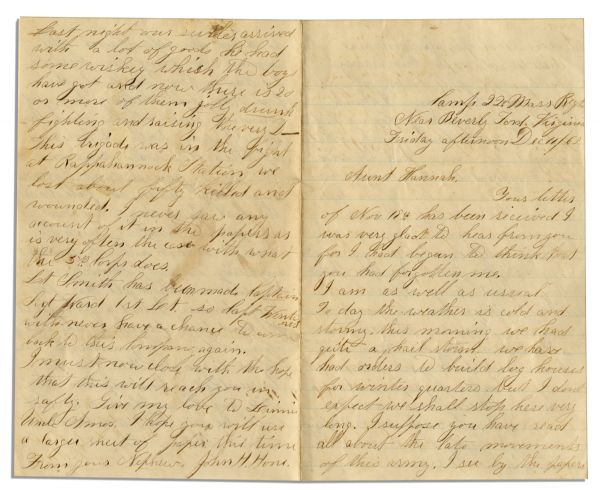 Camp 22d Mass Rgt
Near Beverly Ford Virginia
Friday afternoon Dec 4/63
Aunt Hannah,
Your letter
of Nov 18th has been received I
was very glad to hear from you
for I had begun to think that
you had forgotten me.
I am as well as usual
To day the weather is cold and
stormy. this morning we had
quite a hail storm. we have
had orders to build log houses
for winter quarters but I dont
expect we shall stop here very
long. I suppose you have read
all about the late movements
of this army. I see by the papers
Last night our sutler arrived
with a lot of goods he had
some wiskey which the boys
have got and now there is 20
or more of them jolly drunk
fighting and raising the very D—
this brigade was in the fight
at Rappahannock Station we
lost about fifty killed and
wounded. I never saw any
account of it in the papers as
is very often the case with what
the 5th Corps does.
Lt Smith has been made Captain
Sgt Ward 1st Lt. so Capt
will never have a chance to come
back to his Company again.
I must now close with the hope
that this will reach you in
safty. Give my love to
Uncle Amos. I hope you will use
a larger sheet of paper this time
From your Nephew, John H. Hone.